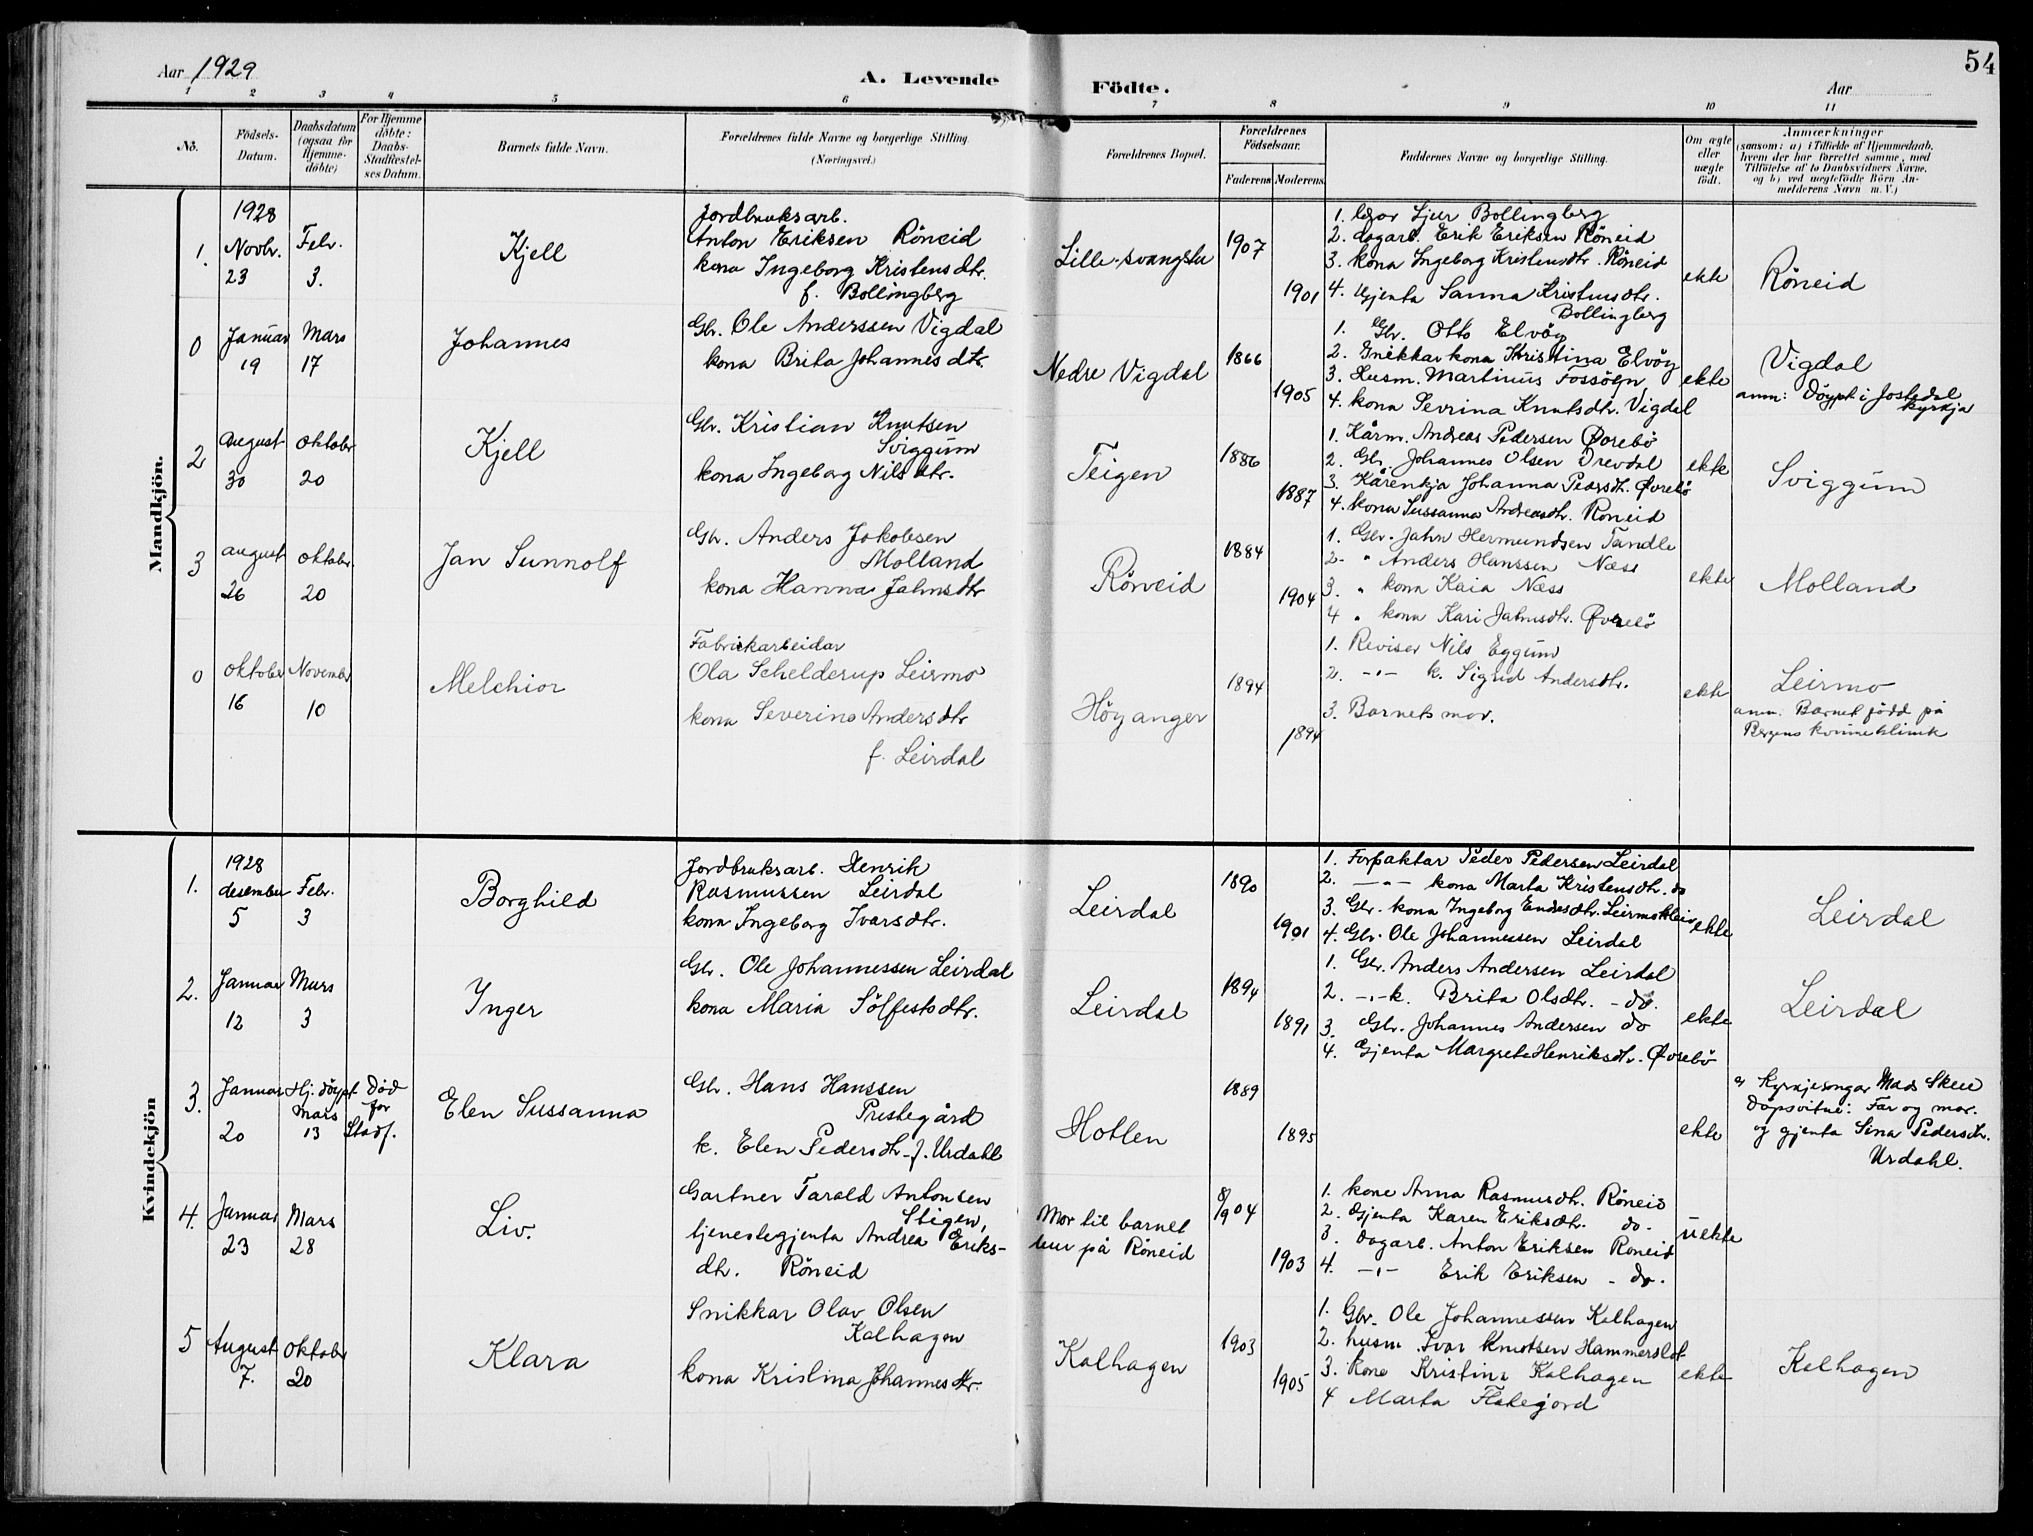 54
Aar 1929
A. Levende
Födte.
Aar
1 2 3 4 5 6 7 8 9 10 11
No.
Födsels-
Datum.
Daabsdatum
(ogsaa for
Hjemme-
döbte)
For Hjemme
döbte:
Daabs-
Stadfæstel-
ses Datum.
Barnets fulde Navn.
Forældrenes fulde Navne og borgerlige Stilling.
(Næringsvei.)
Forældrenes Bopæl.
Forældrenes
Födselsaar.
Faderens
Moderens
Faddernes Navne og borgerlige Stilling.
Om ægte
eller
uægte
födt.
Anmærkninger
(saasom: a) i Tilfælde af Hjemmedaab,
hvem der har forrettet samme, med
Tilföielse af to Daabsvidners Navne,
og b) ved uægtefödte Börn An-
melderens Navn m. V.)
Mandkjön.
1.
1928
Novbr.
23
Febr.
3.
Kjell
Jordbruksarb.
Anton Eriksen Röneid
kona Ingeborg Kristensdtr.
f. Bollingberg
Lille-svangstu
1907
1901
1. Sjur Bollingberg
2. dagarb. Erik Eriksen Röneid
3. kona Ingeborg Kristensdtr. Röneid
4. Gjenta Sanna Kristensdtr.
Bollingberg
ekte
Röneid
0
Januar
19
Mars
17
Johannes
Gbr. Ole Anderssen Vigdal
kona Brita Johannesdtr.
Nedre Vigdal
1866
1905
1. Gbr. Otto Elvöy
2. Snikkar kona Kristina Elvöy
3. Husm. Martinus Fossöyn
4. kona Sevrina Knutsdtr. Vigdal
ekte
Vigdal
anm: Döypt i Jostedal
kyrkja
2
august
30
oktober
20
Kjell
Gbr. Kristian Knutsen
Sviggum
kona Ingeborg Nilsdtr.
Teigen
1886
1887
1. Kårm. Andreas Pedersen Övrebö
2. Gbr. Johannes Olsen Drevdal
3. Kårenkja Johanna Pedersdtr. Övrebö
4. kona Sussanna Andreasdtr. Röneid
ekte
Sviggum
3
august
26
oktober
20
Jan Sunnolf
Gbr. Anders Jakobsen
Molland
kona Hanna Jahnsdtr
Röneid
1884
1904
1. Gbr. Jahn Hermundsen Tandle
2. " Anders Hanssen Næss
3. " kona Kaia Næss
4 " kona Kari Jahnsdtr. Övrebö
ekte
Molland
0
oktober
16
November
10
Melchior
Fabrikkarbeidar
Ola Schelderup Leirmo
kona Severina Andersdtr
f. Leirdal
Höyanger
1894
1894
1. Reviser Nils Eggum
2. -"- k. Sigrid Andersdtr.
3. Barnets mor.
ekte
Leirmo
anm. Barnet född på
Bergens kvinneklinik
Kvindekjön
1.
1928
desember
5
Febr.
3
Borghild
Jordbruksarb. Henrik
Rasmussen Leirdal
kona Ingeborg Ivarsdtr.
Leirdal
1890
1901
1. Forpaktar Peder Pedersen Leirdal
2. -"- kona Marta Kristensdtr. do
3. Gbr. kona Ingeborg Endresdtr. Leirmokleiv
4. Gbr. Ole Johannessen Leirdal
ekte
Leirdal
2.
Januar
12
Mars
3
Inger
Gbr. Ole Johannessen Leirdal
kona Maria Sölfestsdtr.
Leirdal
1894
1891
1. Gbr. Anders Andersen Leirdal
2. -"- k. Brita Olsdtr. - do.
3. Gbr. Johannes Andersen do
4. Gjenta Margrete Henriksdtr. Övrebö
ekte
Leirdal
3.
Januar
20
Hj. döypt
Mars
13
Död
for
Stadf.
Elen Sussanna
Gbr. Hans Hanssen
Prestegård
k. Elen Pedersdtr. f. Urdahl
Hotlen
1889
1895
ekte
a) Kyrkjesongar Mads Skeie
Döpsvitne: Far og mor.
og gjenta Sina Pedersdtr.
Urdahl.
4.
Januar
23
Mars
28
Liv.
Gartner Tarald Antonsen
Stigen,
tjenestegjenta Andrea Eriks-
dtr. Röneid
Mor til barnet
bur på Röneid
8/9 04
1903
1. kone Anna Rasmusdtr. Röneid
2. Gjenta Karen Eriksdtr. do.
3. Dagarb. Anton Eriksen Röneid
4. -"- Erik Eriksen - do.
uekte
5
August
7.
oktober
20
Klara
Snikkar Olav Olsen
Kalhagen
kona Kristina Johannesdtr.
Kalhagen
1903
1905
1. Gbr. Ole Johannessen Kalhagen
2. husm Ivar Knutsen Hammerslot
3. Kone Kristina Kalhagen
4 Marta Flatejord
ekte
Kalhagen